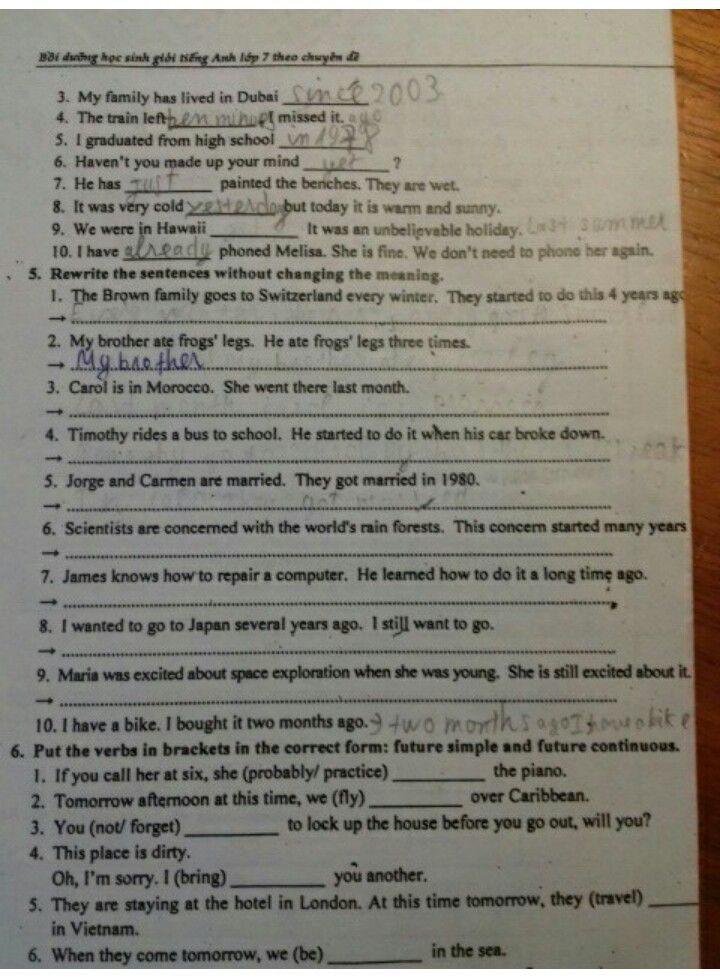 Bồi dưỡng học sinh giỏi tiếng Anh lớp 7 theo chuyên đề
3. My family has lived in Dubai since 2003
4. The train left ten minute I missed it. ago
5. I graduated from high school in 1978
6. Haven't you made up your mind yet ?
7. He has just painted the benches. They are wet.
8. It was very cold yesterday but today it is warm and sunny.
9. We were in Hawaii ________ It was an unbelievable holiday. last summer
10. I have already phoned Melisa. She is fine. We don't need to phone her again.
5. Rewrite the sentences without changing the meaning.
1. The Brown family goes to Switzerland every winter. They started to do this 4 years ago
→
2. My brother ate frogs' legs. He ate frogs' legs three times.
→ My brother
3. Carol is in Morocco. She went there last month.
→
4. Timothy rides a bus to school. He started to do it when his car broke down.
→
5. Jorge and Carmen are married. They got married in 1980.
→
6. Scientists are concerned with the world's rain forests. This concern started many years
→
7. James knows how to repair a computer. He learned how to do it a long time ago.
→
8. I wanted to go to Japan several years ago. I still want to go.
→
9. Maria was excited about space exploration when she was young. She is still excited about it.
→
10. I have a bike. I bought it two months ago. → two months ago I have a bike
6. Put the verbs in brackets in the correct form: future simple and future continuous.
1. If you call her at six, she (probably/ practice) ________ the piano.
2. Tomorrow afternoon at this time, we (fly) ________ over Caribbean.
3. You (not/ forget) ________ to lock up the house before you go out, will you?
4. This place is dirty.
Oh, I'm sorry. I (bring) ________ you another.
5. They are staying at the hotel in London. At this time tomorrow, they (travel) ____
in Vietnam.
6. When they come tomorrow, we (be) ________ in the sea.